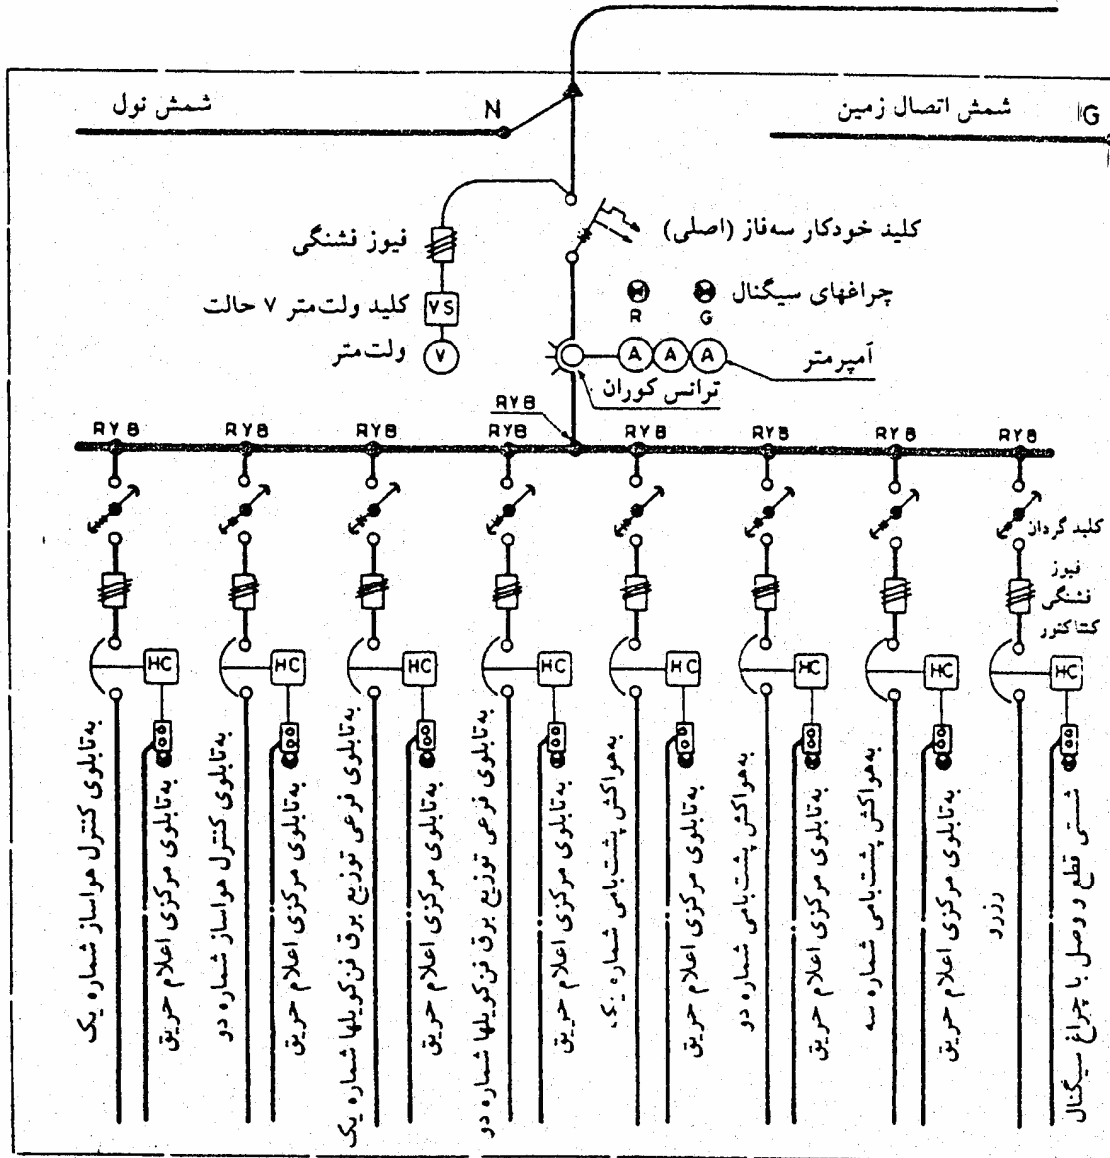 شمش نول
N
شمش اتصال زمین
G
کلید خودکار سه‌فاز (اصلی)
فیوز فشنگی
چراغهای سیگنال
R
G
کلید ولت‌متر ۷ حالت
VS
ولت‌متر
V
A
A
A
آمپرمتر
ترانس کوران
RYB
RYB
RYB
RYB
RYB
RYB
RYB
RYB
RYB
کلید گردان
فیوز
فشنگی
کنتاکتور
HC
HC
HC
HC
HC
HC
HC
HC
به‌تابلوی کنترل هواساز شماره یک
به‌تابلوی مرکزی اعلام حریق
به‌تابلوی کنترل هواساز شماره دو
به‌تابلوی مرکزی اعلام حریق
به‌تابلوی فرعی توزیع برق فن‌کویلها شماره یک
به‌تابلوی مرکزی اعلام حریق
به‌تابلوی فرعی توزیع برق فن‌کویلها شماره دو
به‌تابلوی مرکزی اعلام حریق
به‌هواکش پشت‌بامی شماره یک
به‌تابلوی مرکزی اعلام حریق
به‌هواکش پشت‌بامی شماره دو
به‌تابلوی مرکزی اعلام حریق
به‌هواکش پشت‌بامی شماره سه
به‌تابلوی مرکزی اعلام حریق
رزرو
شستی قطع و وصل با چراغ سیگنال